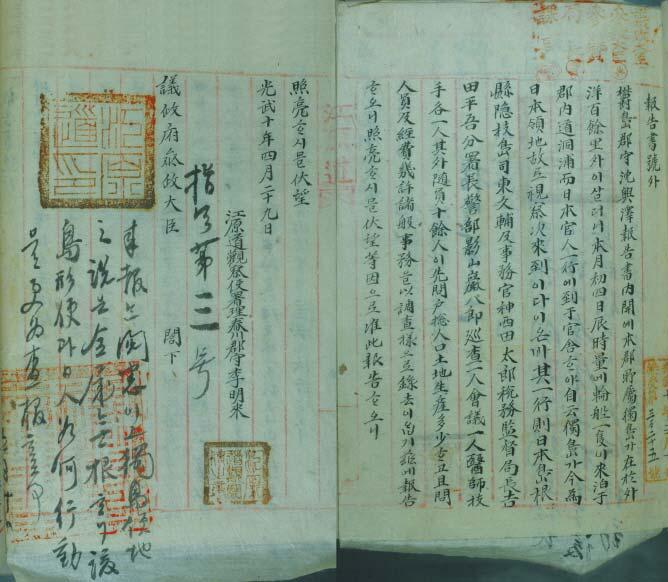 報告書號外
鬱島郡守沈興澤報告書內開에本郡所屬獨島가在於外
洋百餘里外이살더니本月初四日辰時量에輪船一隻이來泊于
郡內道洞浦而日本官人一行이到于官舍ᄒᆞ야自云獨島가今爲
日本領地故로視察次來到이다이온바其一行則日本島根
縣隱技島司東文輔及事務官神西田太郎稅務監督局長吉
田平吾分署長警部影山巖八郎巡査一人會議一人醫師技
手各一人其外隨員十餘人이先問戶摠人口土地生産多少ᄒᆞ고且問
人員及經費幾許諸般事務을以調査樣으로錄去이ᄋᆞᆸ기玆에報告
ᄒᆞ오니照亮ᄒᆞ시믈伏望等因으로准此報告ᄒᆞ오니
照亮ᄒᆞ시믈伏望
光武十年四月二十九日
江原道觀察使署理春川郡守李明來
議政府參政大臣 閣下
指令第三号
來報는閱悉이고獨島領地
之說은全屬無根ᄒᆞ나該
島形便과日人如何行動
을更爲査報ᄒᆞᆯ事